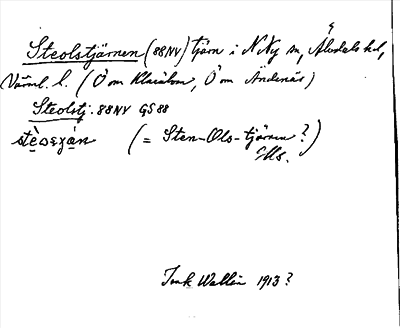 Steolstjärnen (88NV) tjärn i N Ny sn, Älvdals hd,
Värml. l. (Ö om Klarälven, Ö om Ändenäs)
Steolstj. 88NV GS88
(= Sten-Ols-tjärnen?)
Wallin 1913?